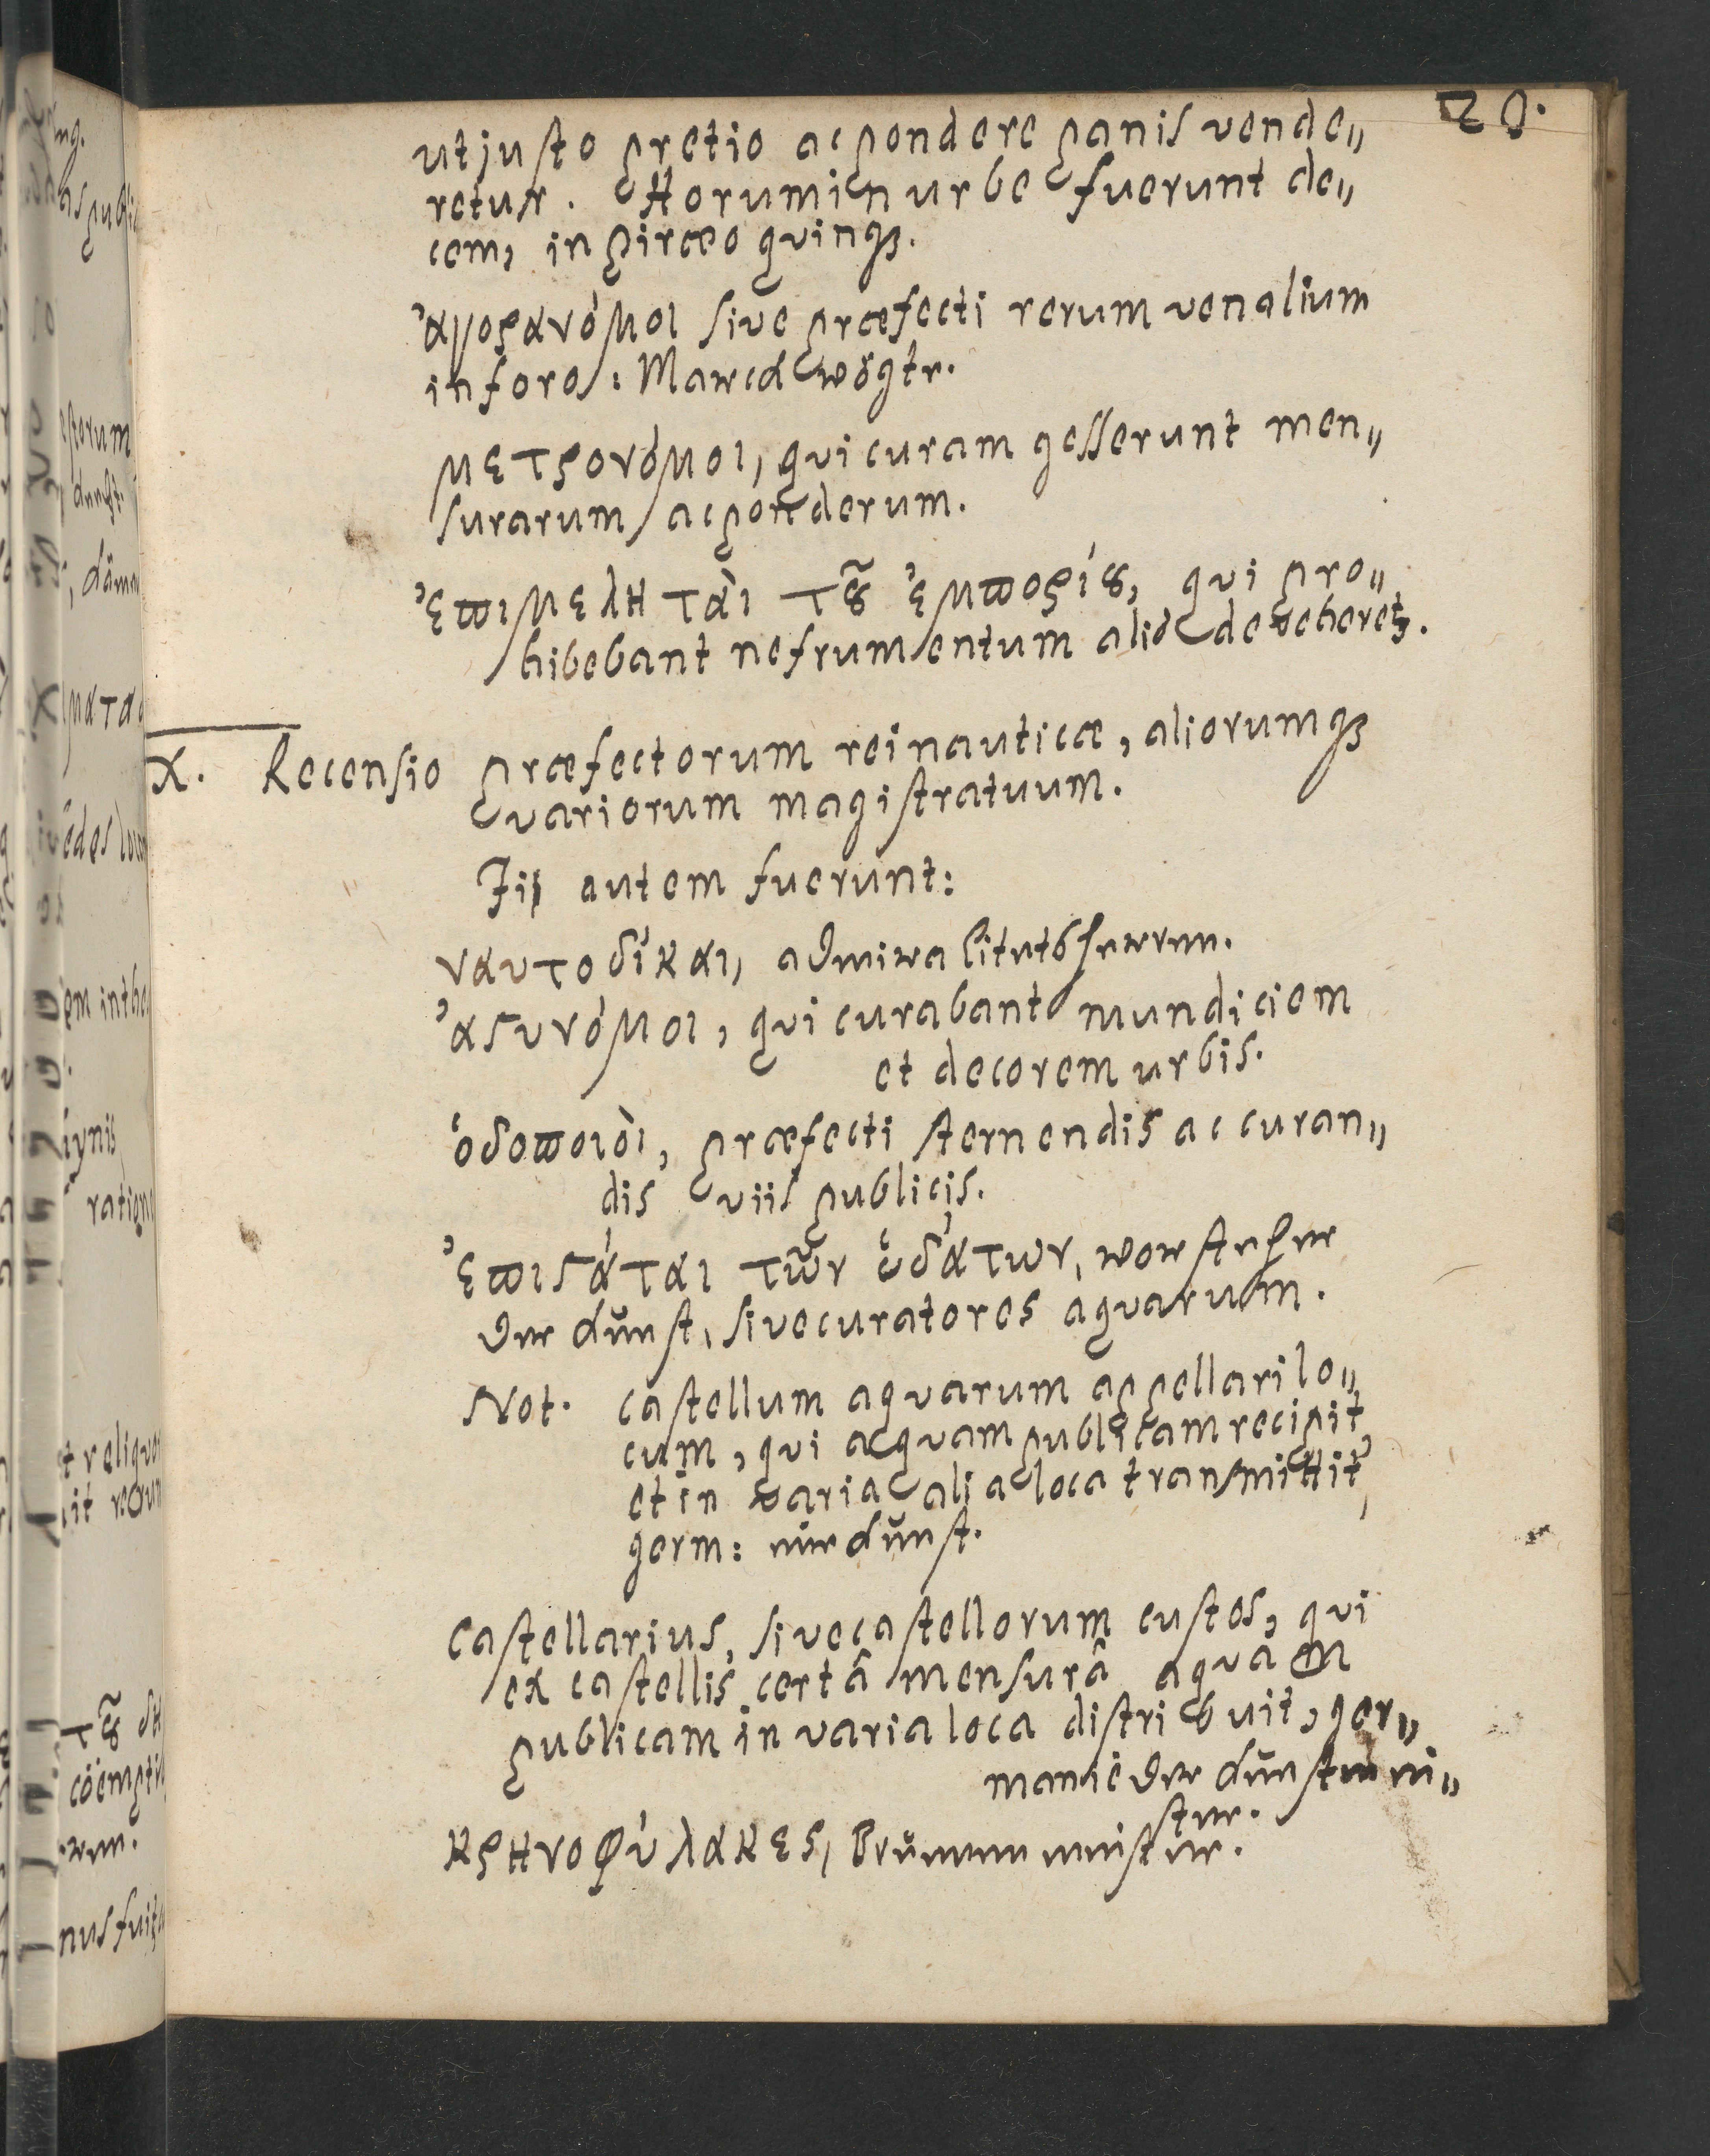 20.
ut justo pretio ac pondere panis vende„
retur. Horum in urbe fuerunt de„
cem, in piræo qvinqȝ.
ἀγορανόμοι sive præfecti rerum venalium
in foro: Marcktvögte.
μετρονόμοι, qvi curam gesserunt men„
surarum ac ponderum.
ἐπιμεληταὶ τȣ͂ ἐμπορίȣ, qvi pro„
hibebant ne frumentum aliò devehereꝷ.
X. Recensio præfectorum rei nauticæ, aliorumqȝ
variorum magistratuum.
Ii autem fuerunt:
ναυτοδίκαι, admiralitäts herren.
ἀϛυνόμοι, qvi curabant mundiciem
et decorem urbis.
ὁδοποιοὶ, præfecti sternendis ac curan„
dis viis publicis.
ἐπιϛάται τῶν ὑδάτων, vorsteher
der künst, sive curatores aqvarum.
Not. castellum aqvarum appellari lo„
cum, qvi acqvam publicam recipit,
et in varia alia loca transmittit,
germ: eine künst.
Castellarius, sive castellorum custos, qvi
ex castellis certâ mensurâ aqvam
publicam in varia loca distribuit, ger„
manicè der künstmei„
ster.
κρηνοφύλακες, Brünnenmeister.